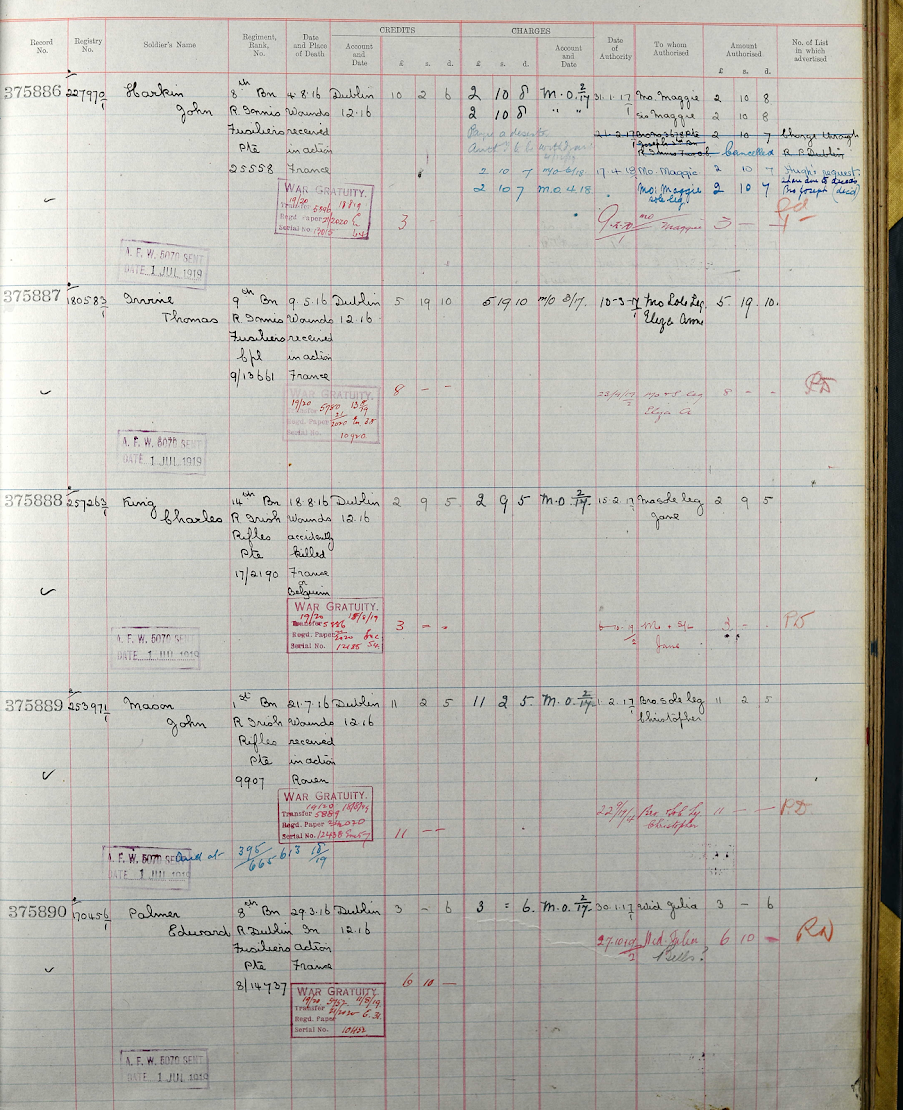 CREDITS CHARGES
Record No. Registry No. Soldier's Name Regiment, Rank, No. Date and Place of Death Account and Date £ s. d. £ s. d. Account and Date Date of Authority To whom Authorised Amount Authorised £ s. d. No. of List in which advertised
375886 227970/1 Harkin 8th Bn 4.8.16 Dublin 10 2 6 2 10 8 M.O. 2/17 31.1.17 Mo. Maggie 2 10 8
John R Innis Wounds 12.16 2 10 8 " " Sis Maggie 2 10 8
Fusiliers received 21.2.17 2 10 7 Charge through
Pte in action Cancelled R.P. Dublin
25558 France 2 10 7 M/O 4/18 17 4 18 Mo. Maggie 2 10 7 Hugh's request
2 10 7 M.O. 4.18 Mo. Maggie 2 10 7 Bro Joseph (decd)
sole leg
WAR GRATUITY.
19/20
Transfer 5896 18819
Regd. Paper 2/2020
Serial No.
3 - mo Maggie 3 -
A. F. W. 5070 SENT
DATE 1 JUL 1919
375887 180583/1 Irvine 9th Bn 9.5.16 Dublin 5 19 10 5 19 10 M/O 3/17. 10-3-17 Mo Sole Leg. 5. 19. 10.
Thomas R. Innis Wounds 12.16 Eliza Anne
Fusiliers received
Cpl in action
9/13661 France
WAR GRATUITY.
19/20
Transfer 5780
Regd. Paper 2020
Serial No. 10920
8 - - Mo & S. Leg 8 - -
Eliza A.
A. F. W. 5070 SENT
DATE 1 JUL 1919
375888 257263/1 King 14th Bn 18.8.16 Dublin 2 9 5 2 9 5 M.O. 2/17. 15.2.17 Mo sole leg 2 9 5
Charles R Irish Wounds 12.16 Jane
Rifles accidently
Pte killed
17/2190 France
or
Belgium
WAR GRATUITY.
19/20 18/6/19
Transfer 5886
Regd. Paper 2/2020
Serial No. 12485
3 - - Mo & S/L 3 -
Jane
A. F. W. 5070 SENT
DATE 1 JUL 1919
375889 253971/1 Mason 1st Bn 21.7.16 Dublin 11 2 5 11 2 5. M.O. 2/17 1.2.17 Bro. sole leg 11 2 5
John R Irish Wounds 12.16 Christopher
Rifles received
Pte in action
9907 Rouen
WAR GRATUITY.
19/20 18/8/19
Transfer 5889
Regd. Paper 2/2020
Serial No. 12438
11 - - Bro Sole Leg 11 - -
Christopher
A. F. W. 5070 SENT
DATE 1 JUL 1919
395/665 613 18/19
375890 170456/1 Palmer 8th Bn 29.3.16 Dublin 3 - 6 3 = 6. M.O. 2/17. 30.1.17 Wid Julia 3 - 6
Edward R Dublin In 12.16
Fusiliers action 6 10 -
Pte France
8/14737 6 10 -
WAR GRATUITY.
19/20
Transfer
Regd. Paper 2/2020
Serial No.
A. F. W. 5070 SENT
DATE 1 JUL 1919